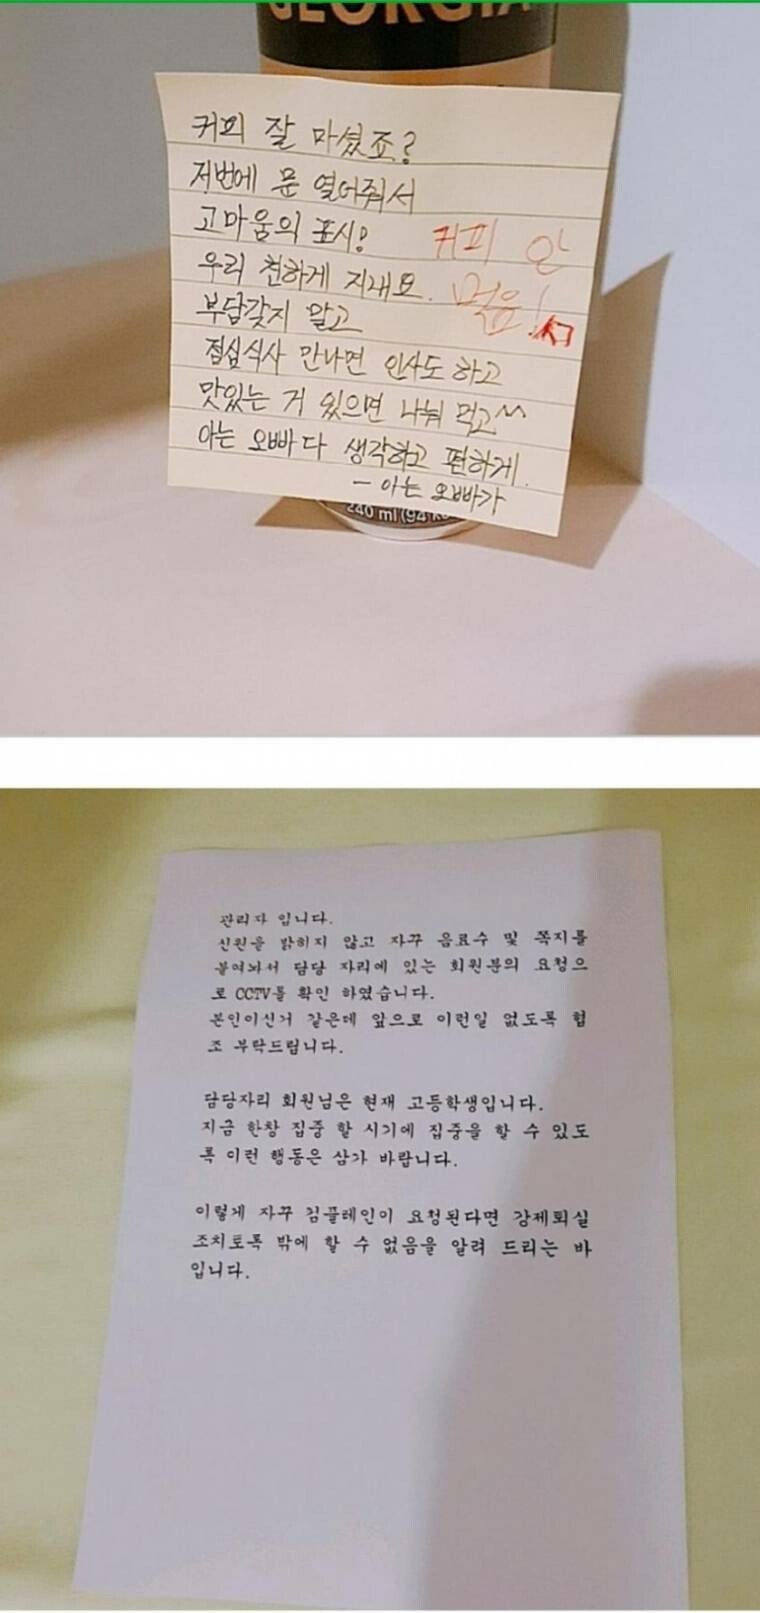 GEORGIA
커피 잘 마셨죠?
저번에 문 열어줘서
고마움의 표시!
커피 안
우리 친하게 지내요.
먹음!
부담갖지 말고
점심식사 만나면 인사도 하고
맛있는 거 있으면 나눠 먹고^^
아는 오빠다 생각하고 편하게.
- 아는 오빠가
240 ml (94 k
관리자 입니다.
신원을 밝히지 않고 자꾸 음료수 및 쪽지를
붙여놔서 담당 자리에 있는 회원분의 요청으
로 CCTV를 확인 하였습니다.
본인이신거 같은데 앞으로 이런일 없도록 협
조 부탁드립니다.
담당자리 회원님은 현재 고등학생입니다.
지금 한창 집중 할 시기에 집중을 할 수 있도
록 이런 행동은 삼가 바랍니다.
이렇게 자꾸 컴플레인이 요청된다면 강제퇴실
조치토록 밖에 할 수 없음을 알려 드리는 바
입니다.